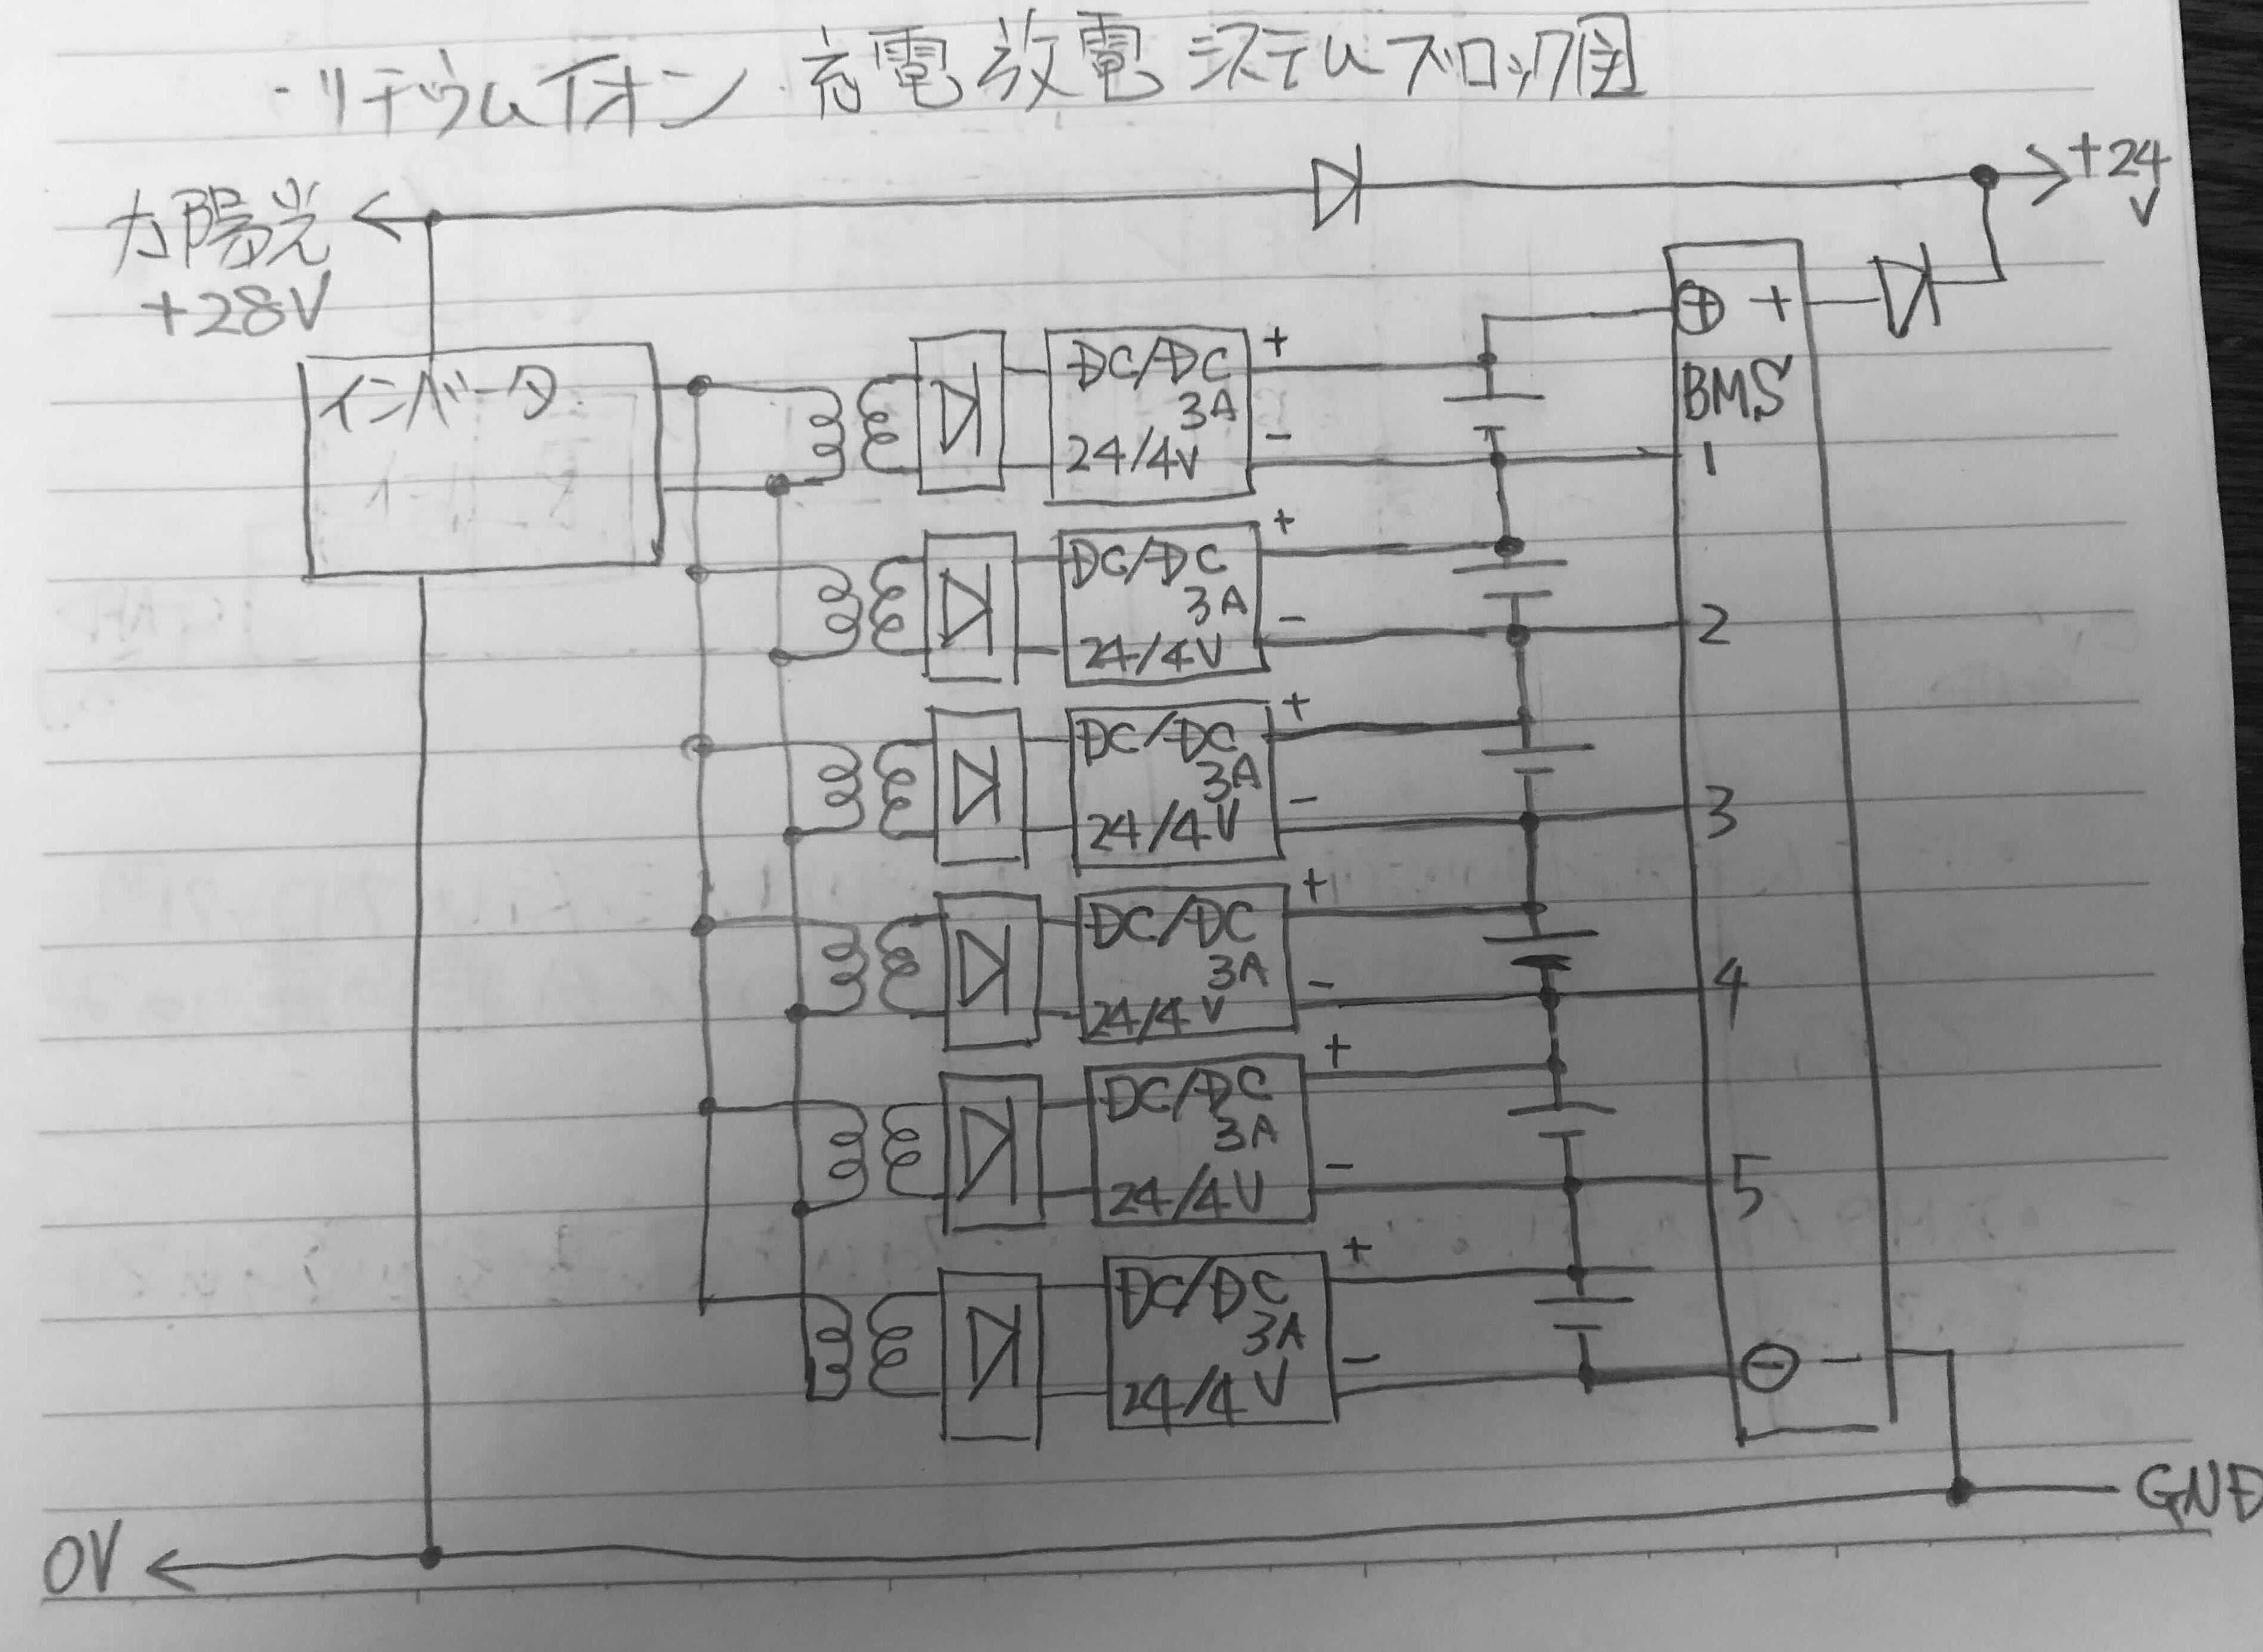 ・リチウムイオン 充電放電システムブロック図
+24V
太陽光
+28V
⊕ +
BMS
インバータ
DC/DC
3A
24/4V
+
-
1
DC/DC
3A
24/4V
+
-
2
DC/DC
3A
24/4V
+
-
3
DC/DC
3A
24/4V
+
-
4
DC/DC
3A
24/4V
+
-
5
DC/DC
3A
24/4V
+
-
⊖ -
GND
0V